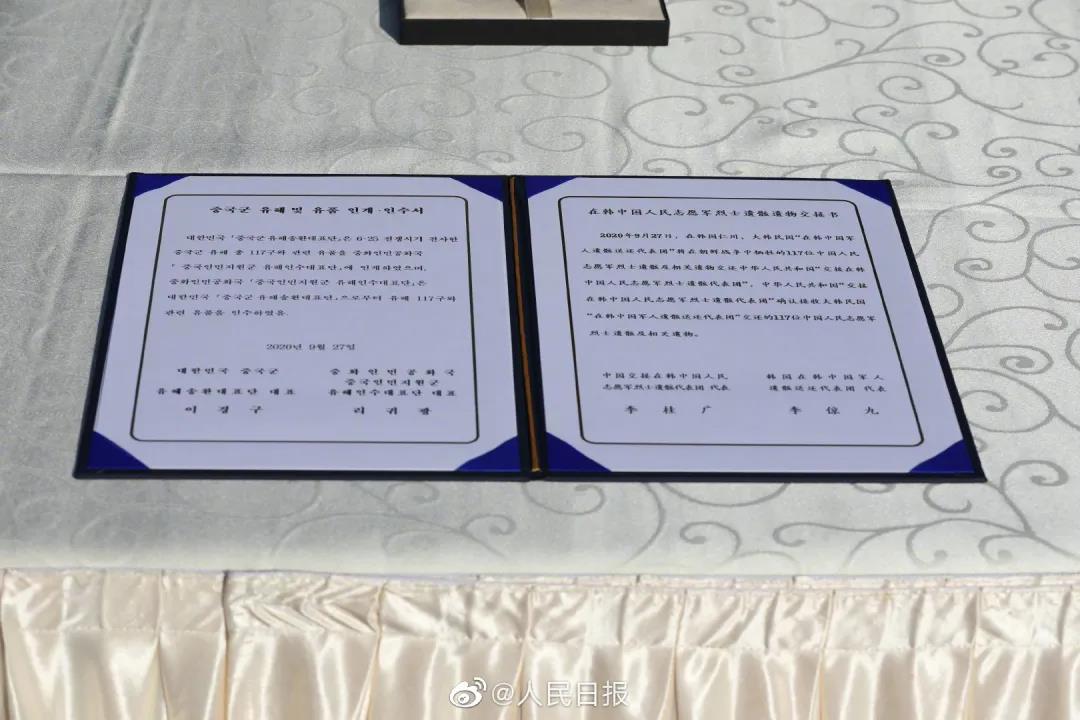 중국군 유해 및 유품 인계·인수서
대한민국 「중국군유해송환대표단」은 6·25 전쟁시기 전사한
중국군 유해 총 117구와 관련 유품을 중화인민공화국
「중국인민지원군 유해인수대표단」에 인계하였으며,
중화인민공화국 「중국인민지원군 유해인수대표단」은
대한민국 「중국군유해송환대표단」으로부터 유해 117구와
관련 유품을 인수하였음.
2020년 9월 27일
대한민국 중국군
유해송환대표단 대표
이경구
중화인민공화국
중국인민지원군
유해인수대표단 대표
리귀광
在韩中国人民志愿军烈士遗骸遗物交接书
2020年9月27日，在韩国仁川，大韩民国“在韩中国军
人遗骸送还代表团”将在朝鲜战争中牺牲的117位中国人民
志愿军烈士遗骸及相关遗物交还中华人民共和国“交接在韩
中国人民志愿军烈士遗骸代表团”，中华人民共和国“交接
在韩中国人民志愿军烈士遗骸代表团”确认接收大韩民国
“在韩中国军人遗骸送还代表团”交还的117位中国人民志愿军
烈士遗骸及相关遗物。
中国交接在韩中国人民
志愿军烈士遗骸代表团 代表
李桂广
韩国在韩中国军人
遗骸送还代表团 代表
李倞九
@人民日报